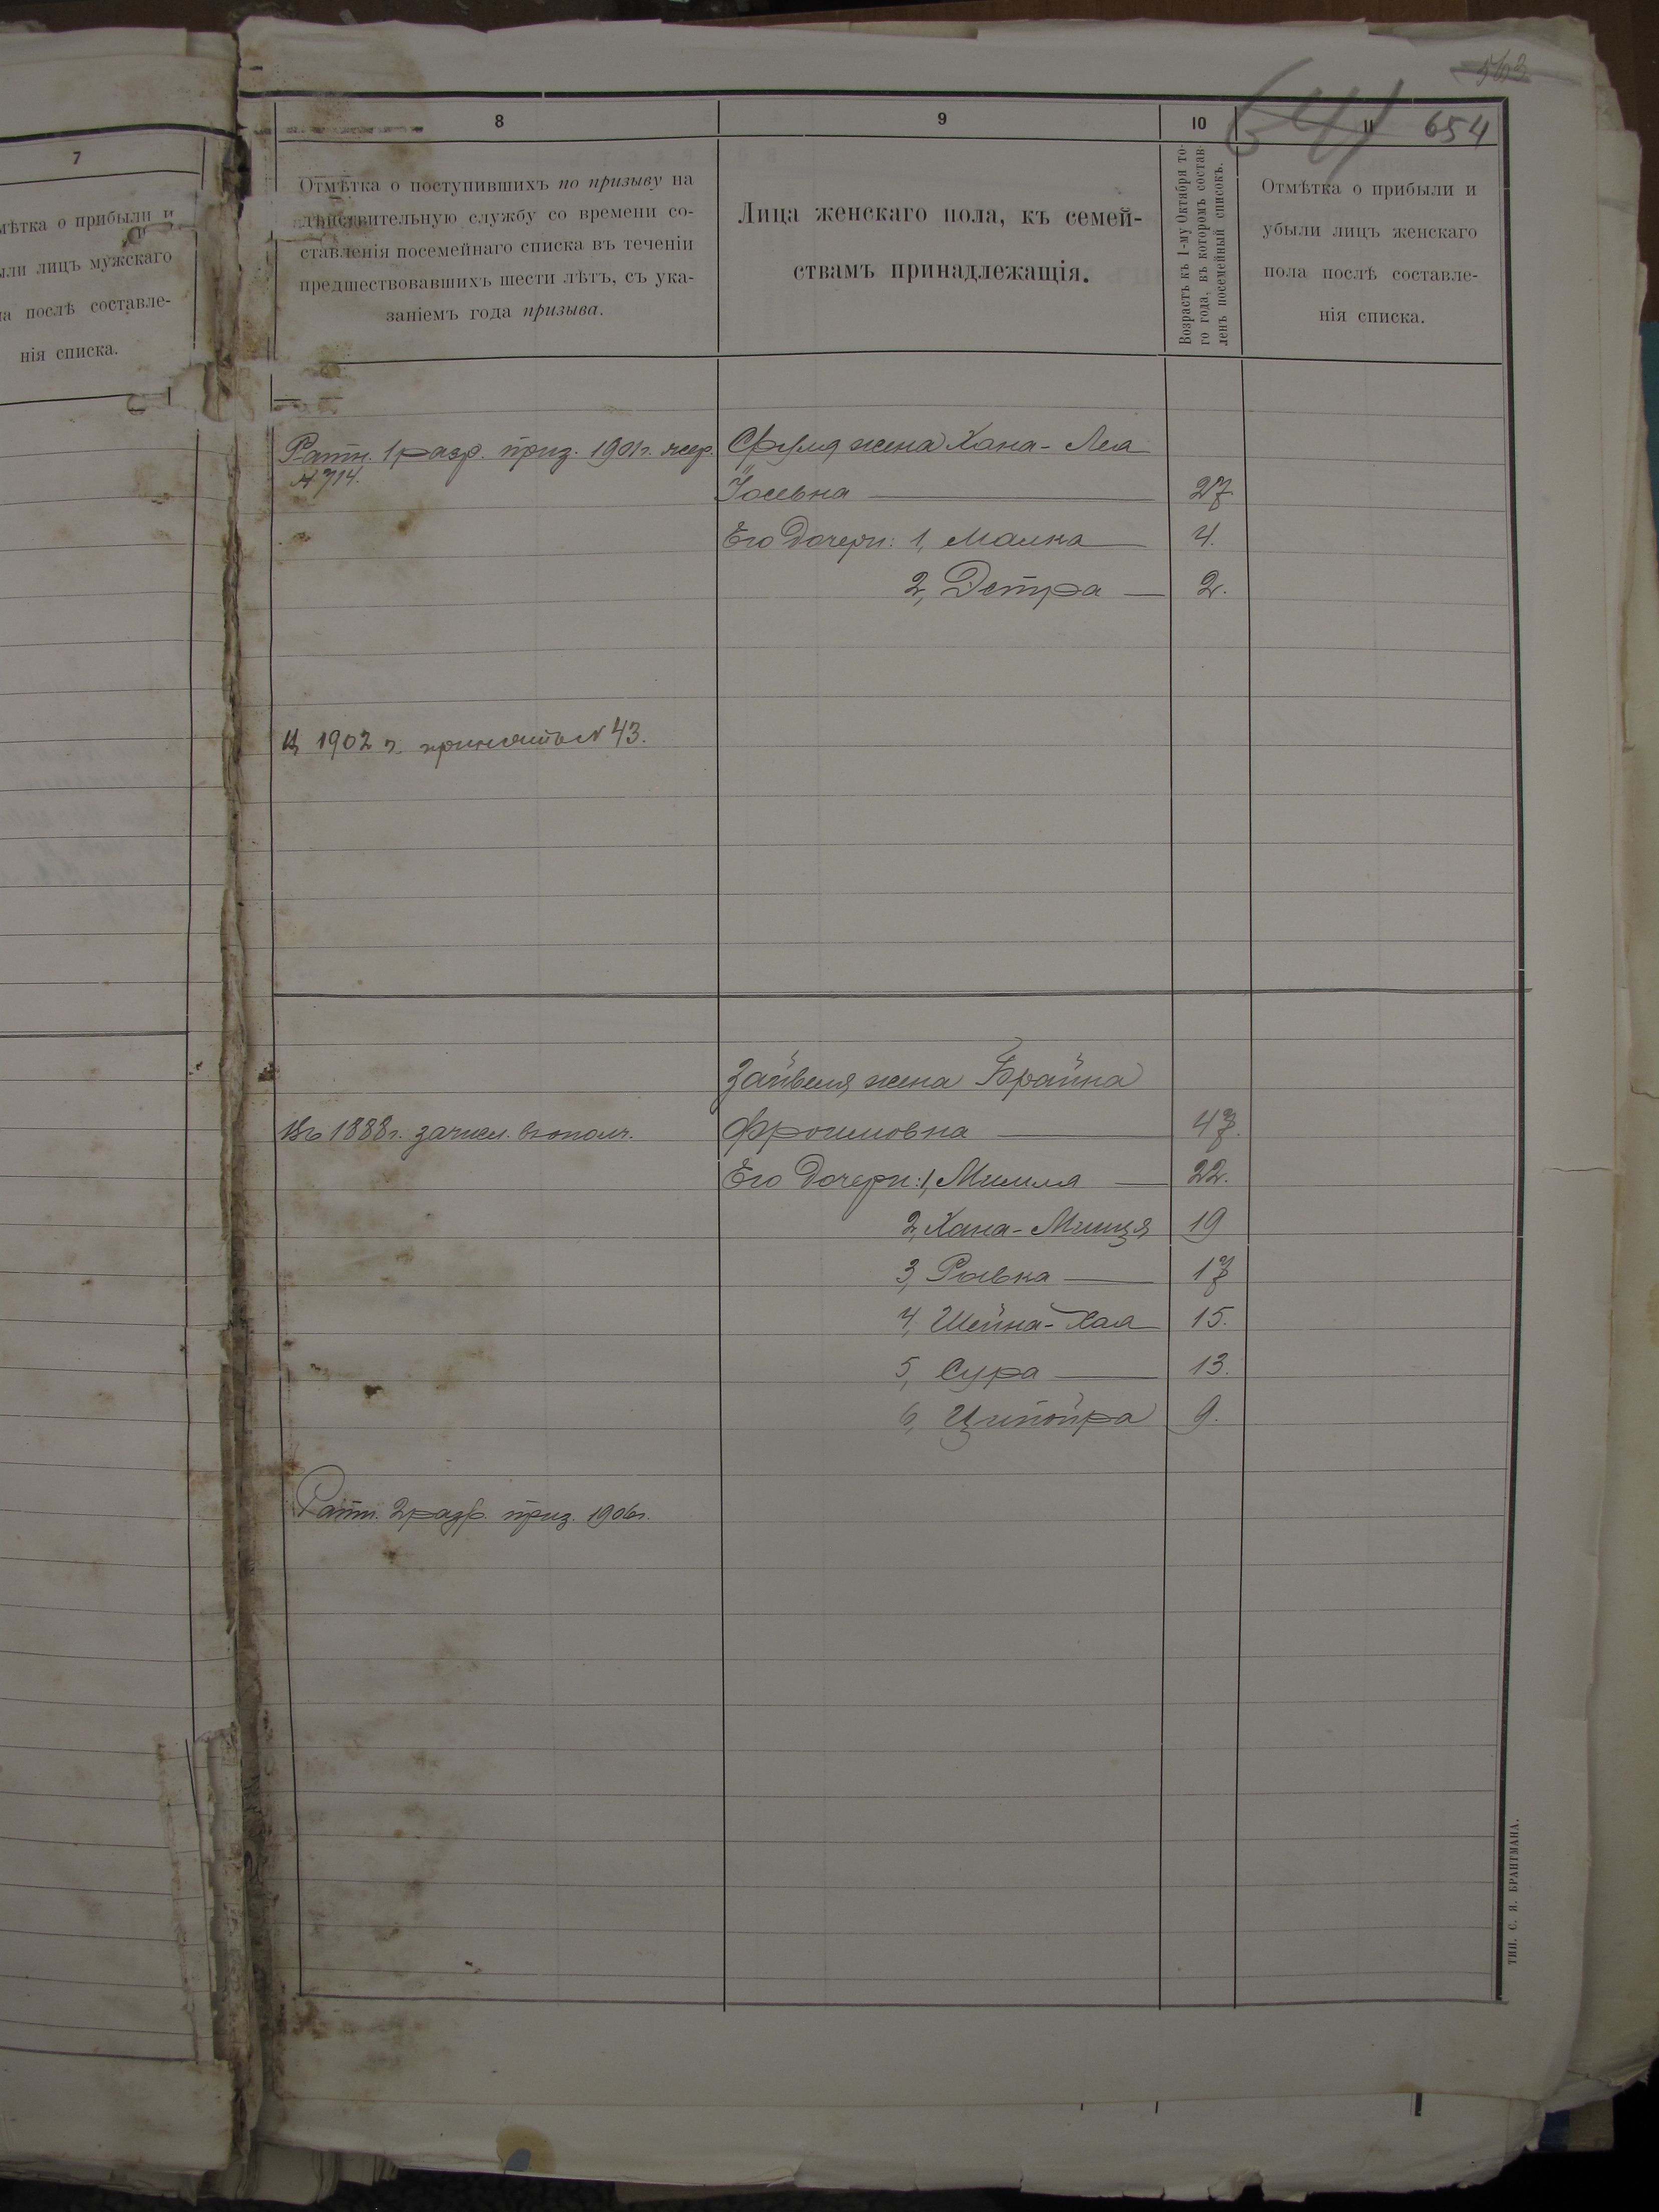 563
641
654
7
мѣтка о прибыли и
ыли лицъ мужскаго
ла послѣ составле-
нія списка.
8
Отмѣтка о поступившихъ по призыву на
дѣйствительную службу со времени со-
ставленія посемейнаго списка въ теченіи
предшествовавшихъ шести лѣтъ, съ ука-
заніемъ года призыва.
9
Лица женскаго пола, къ семей-
ствамъ принадлежащія.
10
Возрастъ къ 1-му Октября то-
го года, въ которомъ состав-
ленъ посемейный списокъ.
11
Отмѣтка о прибыли и
убыли лицъ женскаго
пола послѣ составле-
нія списка.
Ратн. 1 разр. приз. 1901 г. жер.
№ 714.
Сруля жена Хана-Леа
Іосевна 27
Его дочери: 1, Малка 4.
2, Двойра 2.
1902 г. принятъ № 43.
Зайвеля жена Брайна
Въ 1888 г. зачисл. въ ополч.
Фроимовна 47.
Его дочери: 1, 22.
2, Хана- 19
3, Рывка 17
4, Шейна-Хая 15.
5, Сура 13.
6, Ципойра 9.
Ратн. 2 разр. приз. 1906 г.
ТИП. С. Я. БРАНТМАНА.